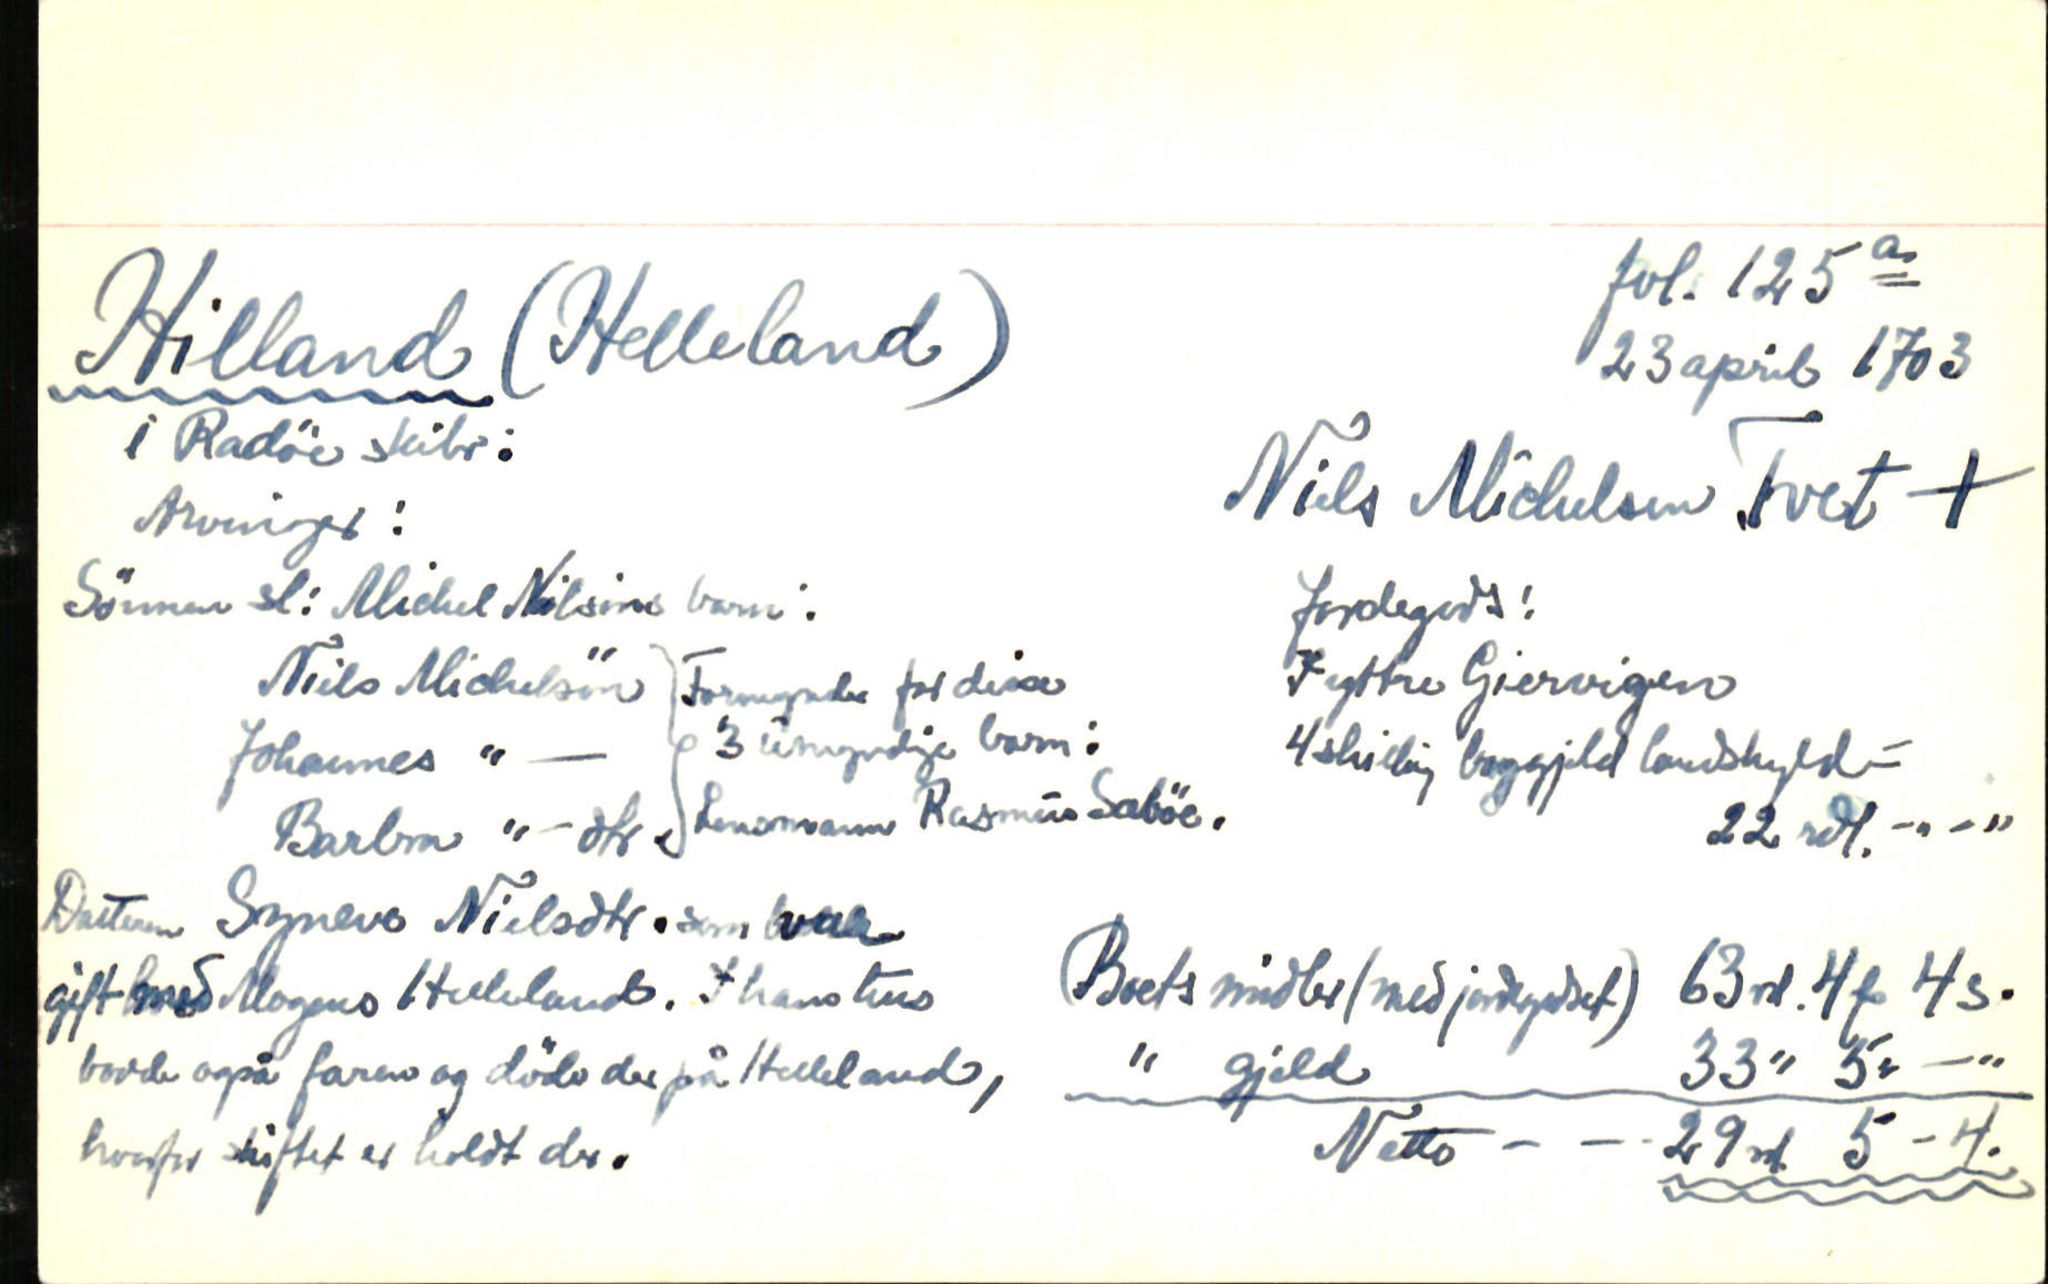 Hilland (Helleland)
i Radöe skibr:
Arvinger:
Sönnen sl: Michel Nilsöns barn:
Niels Michelsön
Johannes " —
Barbra " – dtr.
Formynder for disse
3 umyndige barn:
Lensmann Rasmus Saböe.
Datteren Syneve Nielsdtr. som var
gift med Mogens Helleland. I hans hus
bode også faren og döde der på Helleland,
hvorfor skiftet er holdt der.
fol. 125 a.
23 april 1703
Niels Michelsen Tvet +
Jordegods:
I yttre Giervigen
4 shilling boggjeld landskyld =
22 rdl. –" –"
(Boets midler (med jordegodset) 63 rd. 4 f 4 s.
" gjeld 33 " 5 " — "
Netto – — - 29 rd. 5 – 4.